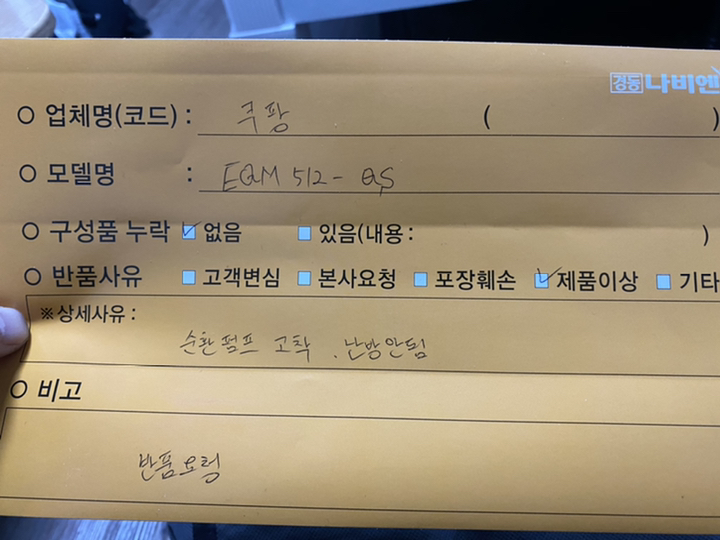 경동 나비엔
○ 업체명(코드) : 쿠팡 ( )
○ 모델명 : EQM 512 - QS
○ 구성품 누락 ☑ 없음 □ 있음(내용 : )
○ 반품사유 □ 고객변심 □ 본사요청 □ 포장훼손 ☑ 제품이상 □ 기타
※ 상세사유 :
순환펌프 고착 . 난방안됨
○ 비고
반품요청